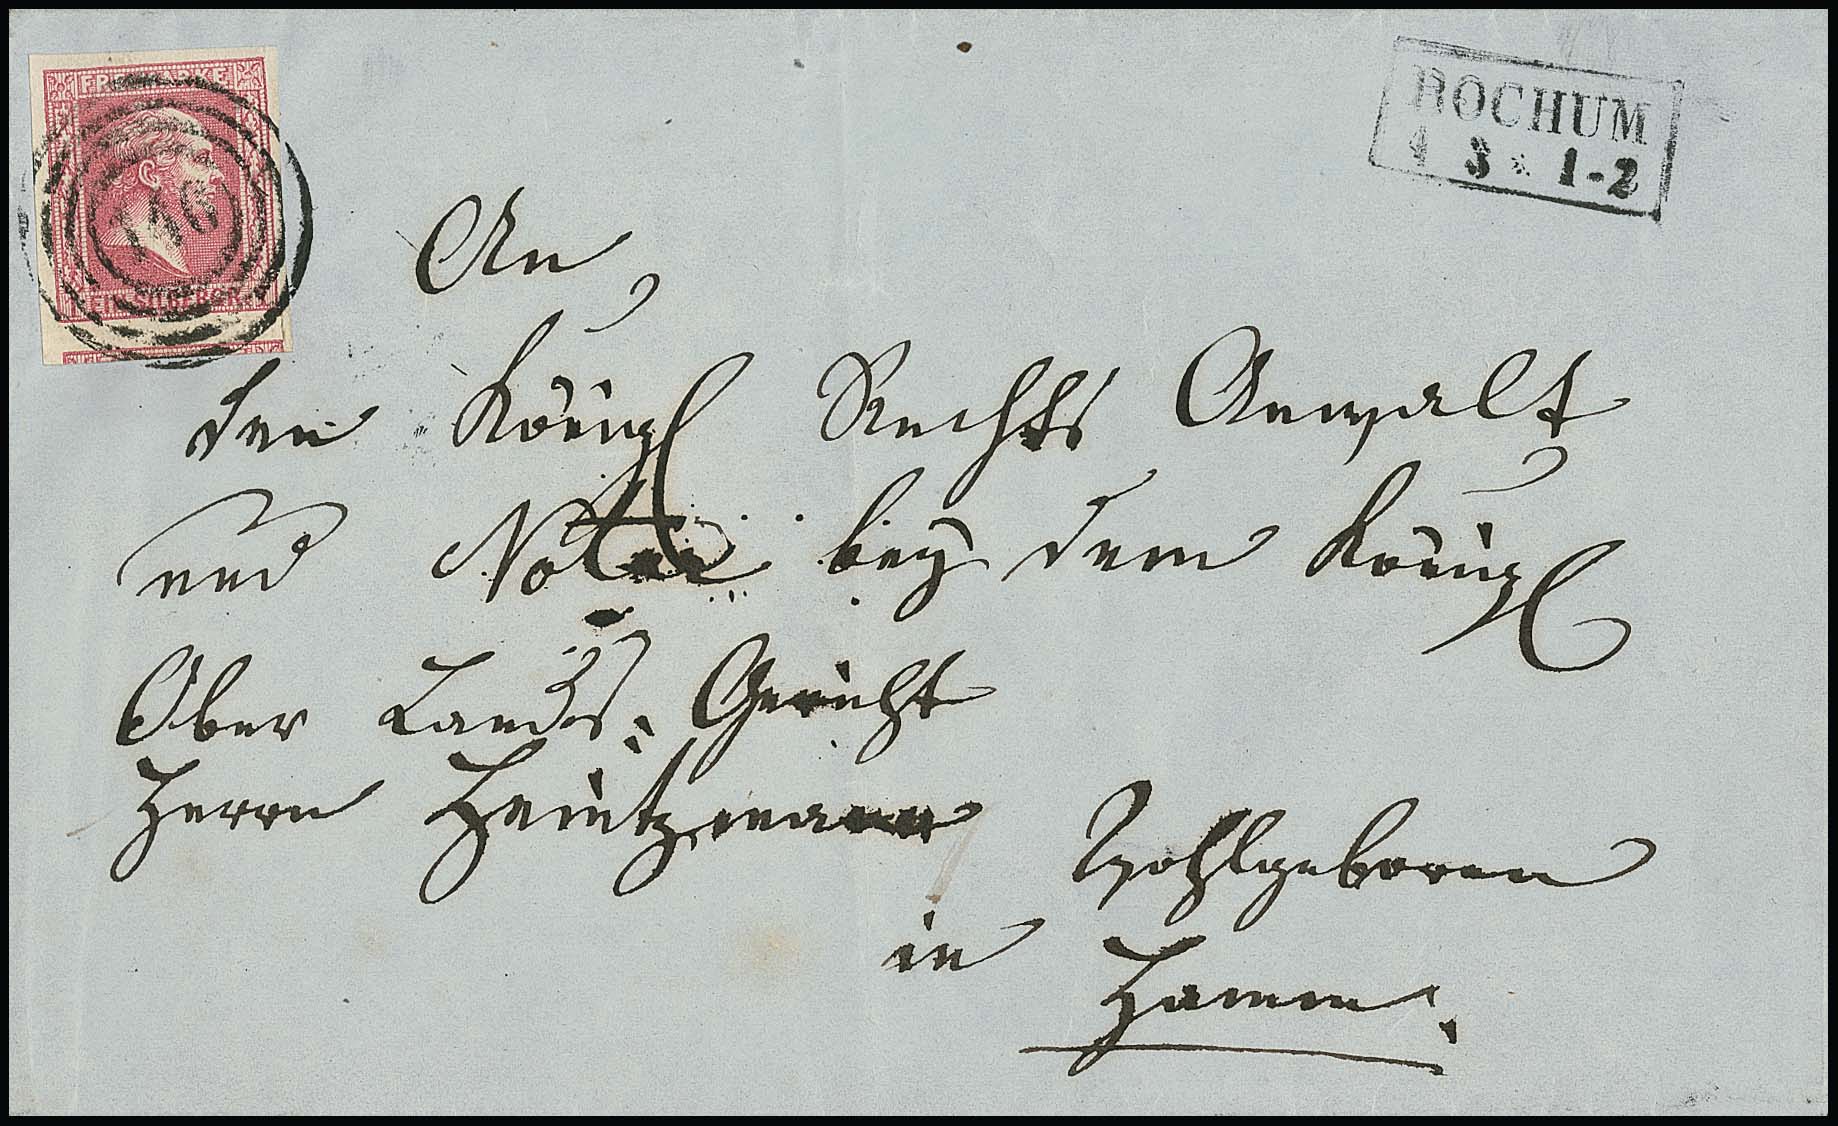 FREIMARKE
148
EIN SILBERGR.
BOCHUM
4 3 * 1-2
An
den Königl Rechts Anwalt
und Notar bey dem Königl
Ober Lands-Gericht
Herrn Heintzmann
Wohlgeboren
in Hamm.